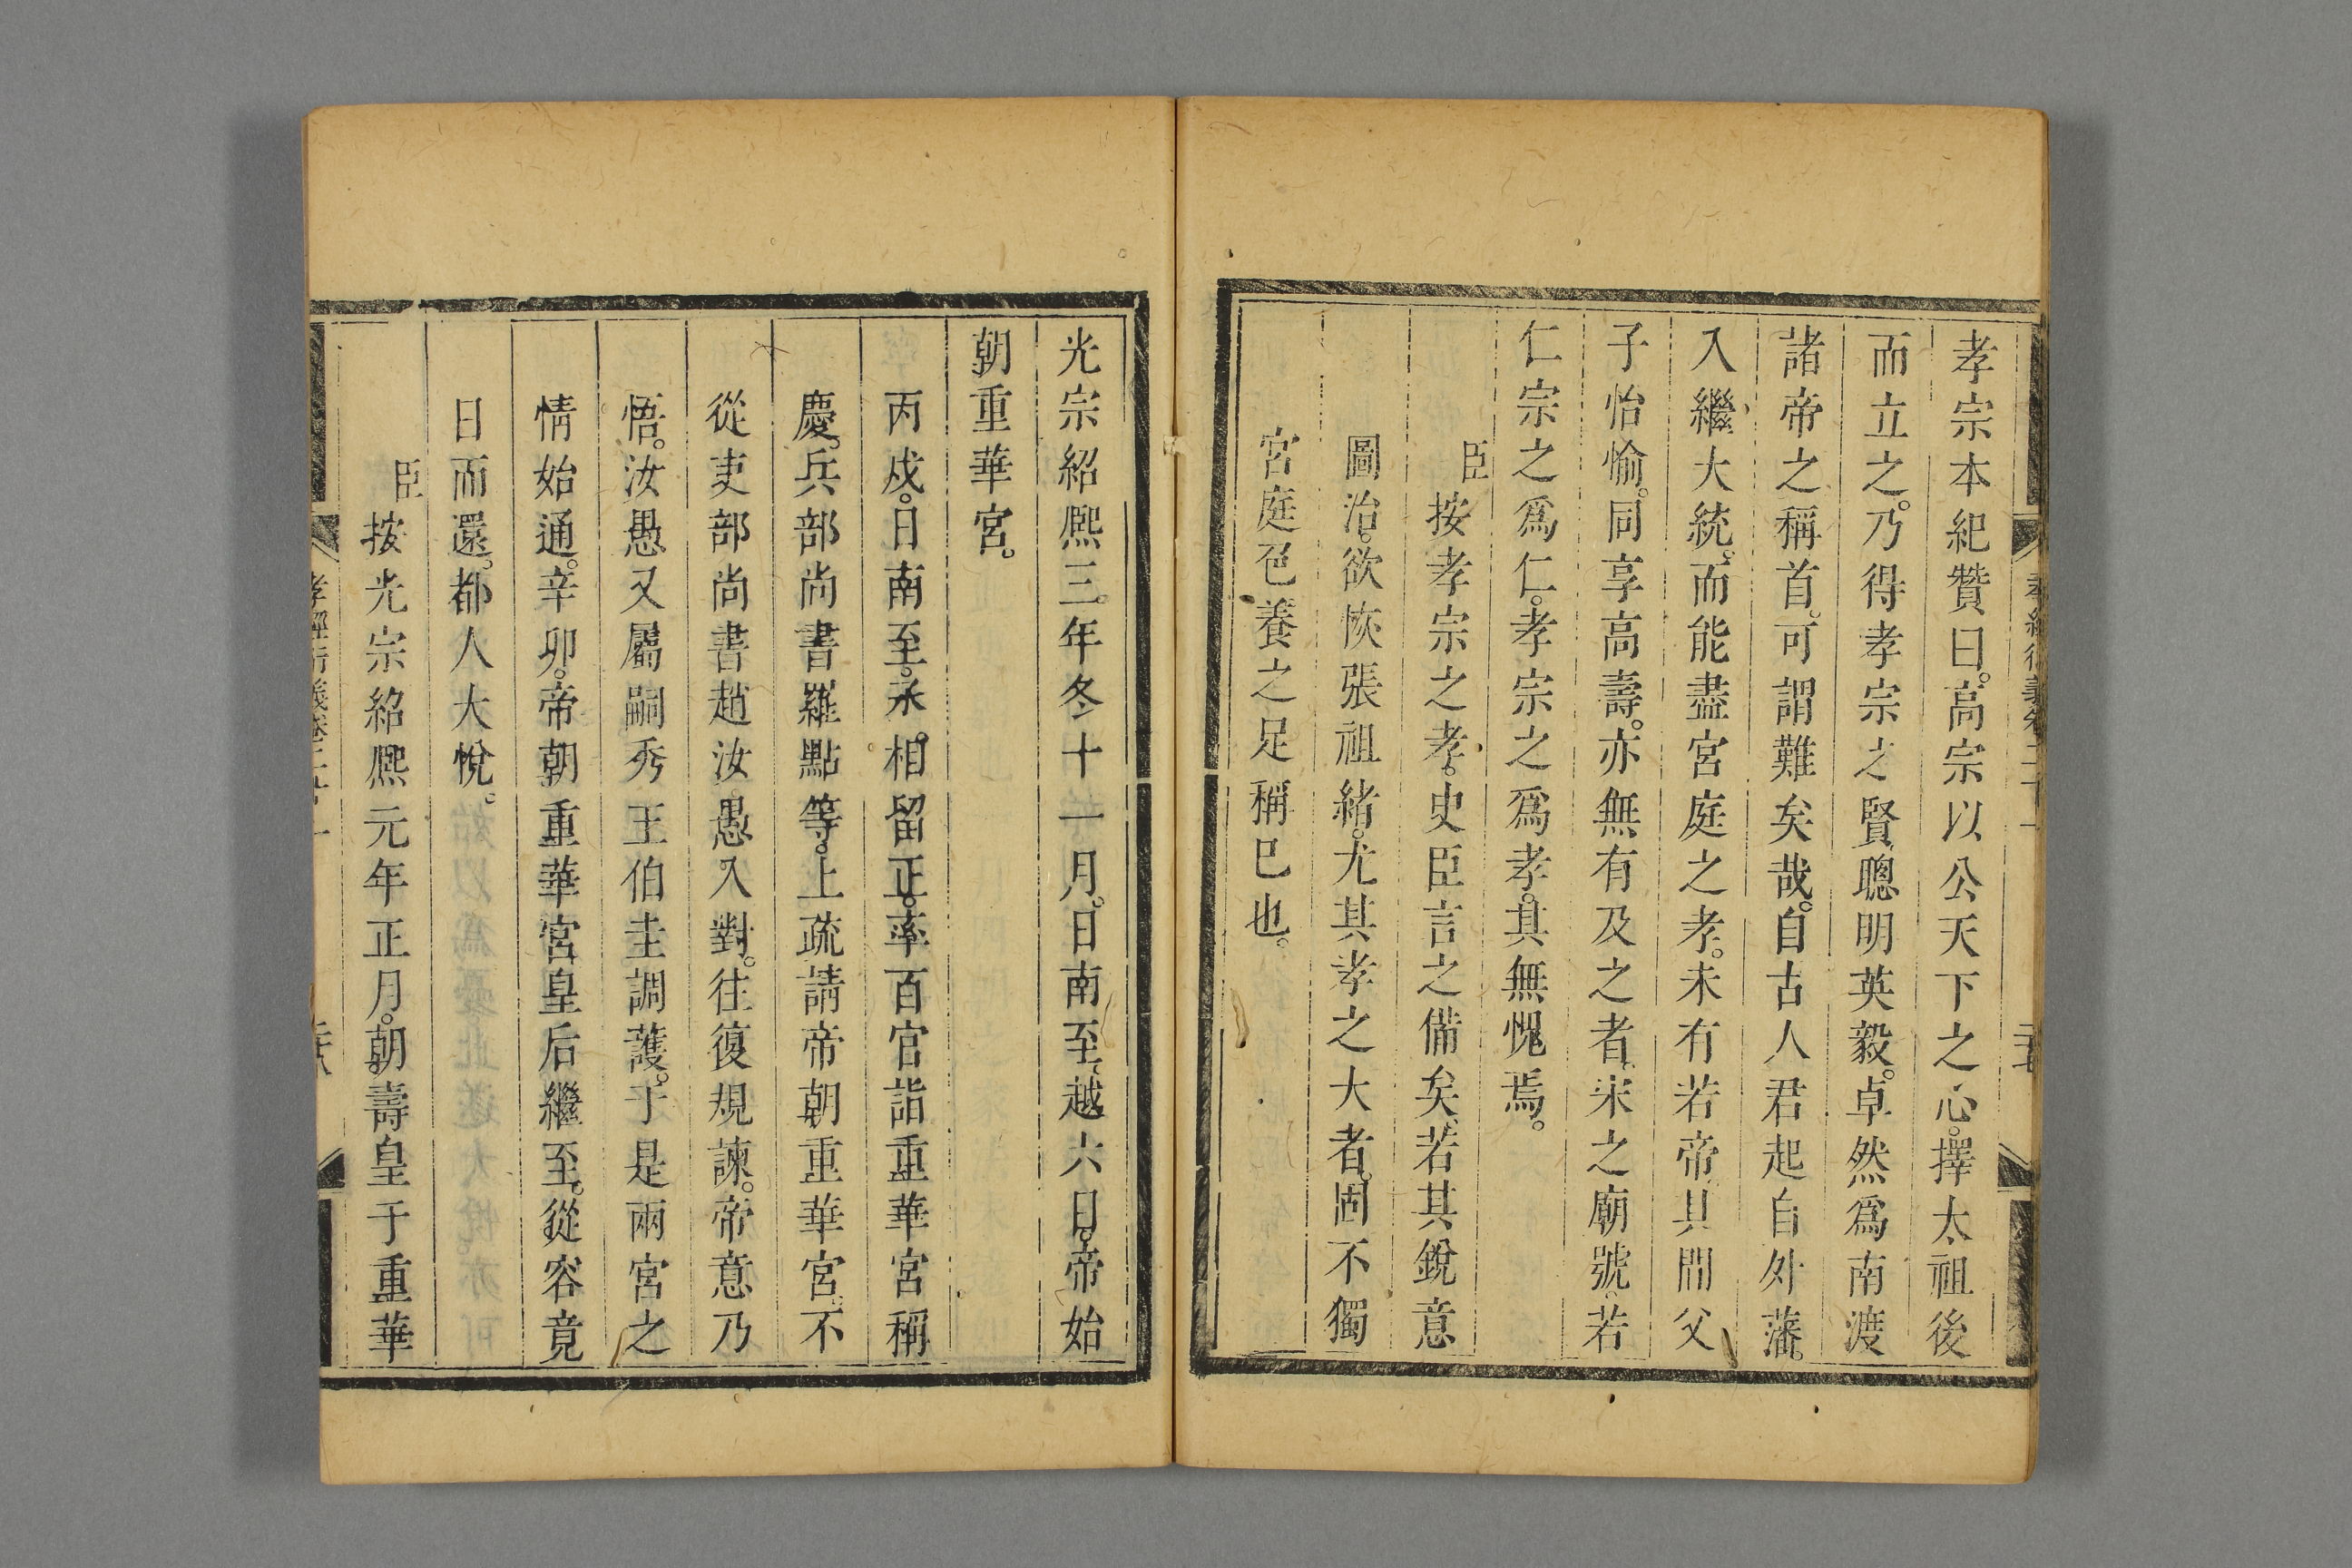 孝宗本紀贊曰。高宗以公天下之心。擇太祖後
而立之。乃得孝宗之賢、聰明英毅。卓然爲南渡
諸帝之稱首。可謂難矣哉。自古人君起自外藩。
入繼大統。而能盡宮庭之孝。未有若帝、其間父
子怡愉。同享高壽。亦無有及之者、宋之廟號。若
仁宗之爲仁。孝宗之爲孝。其無愧焉。
臣按孝宗之孝。史臣言之備矣、若其銳意
圖治。欲恢張祖緒。尤其孝之大者。固不獨
宮庭色養之足稱巳也。
光宗紹熙三年冬十一月。日南至、越六日。帝始
朝重華宮。
丙戌。日南至。丞相留正。率百官詣重華宮稱
慶。兵部尚書羅點等。上疏請帝朝重華宮。不
從吏部尚書趙汝愚入對。往復規諫。帝意乃
悟。汝愚又屬嗣秀王伯圭調護。于是兩宮之
情始通。辛卯。帝朝重華宮皇后繼至。從容竟
日而還。都人大悅。
臣按光宗紹熙元年正月。朝壽皇于重華